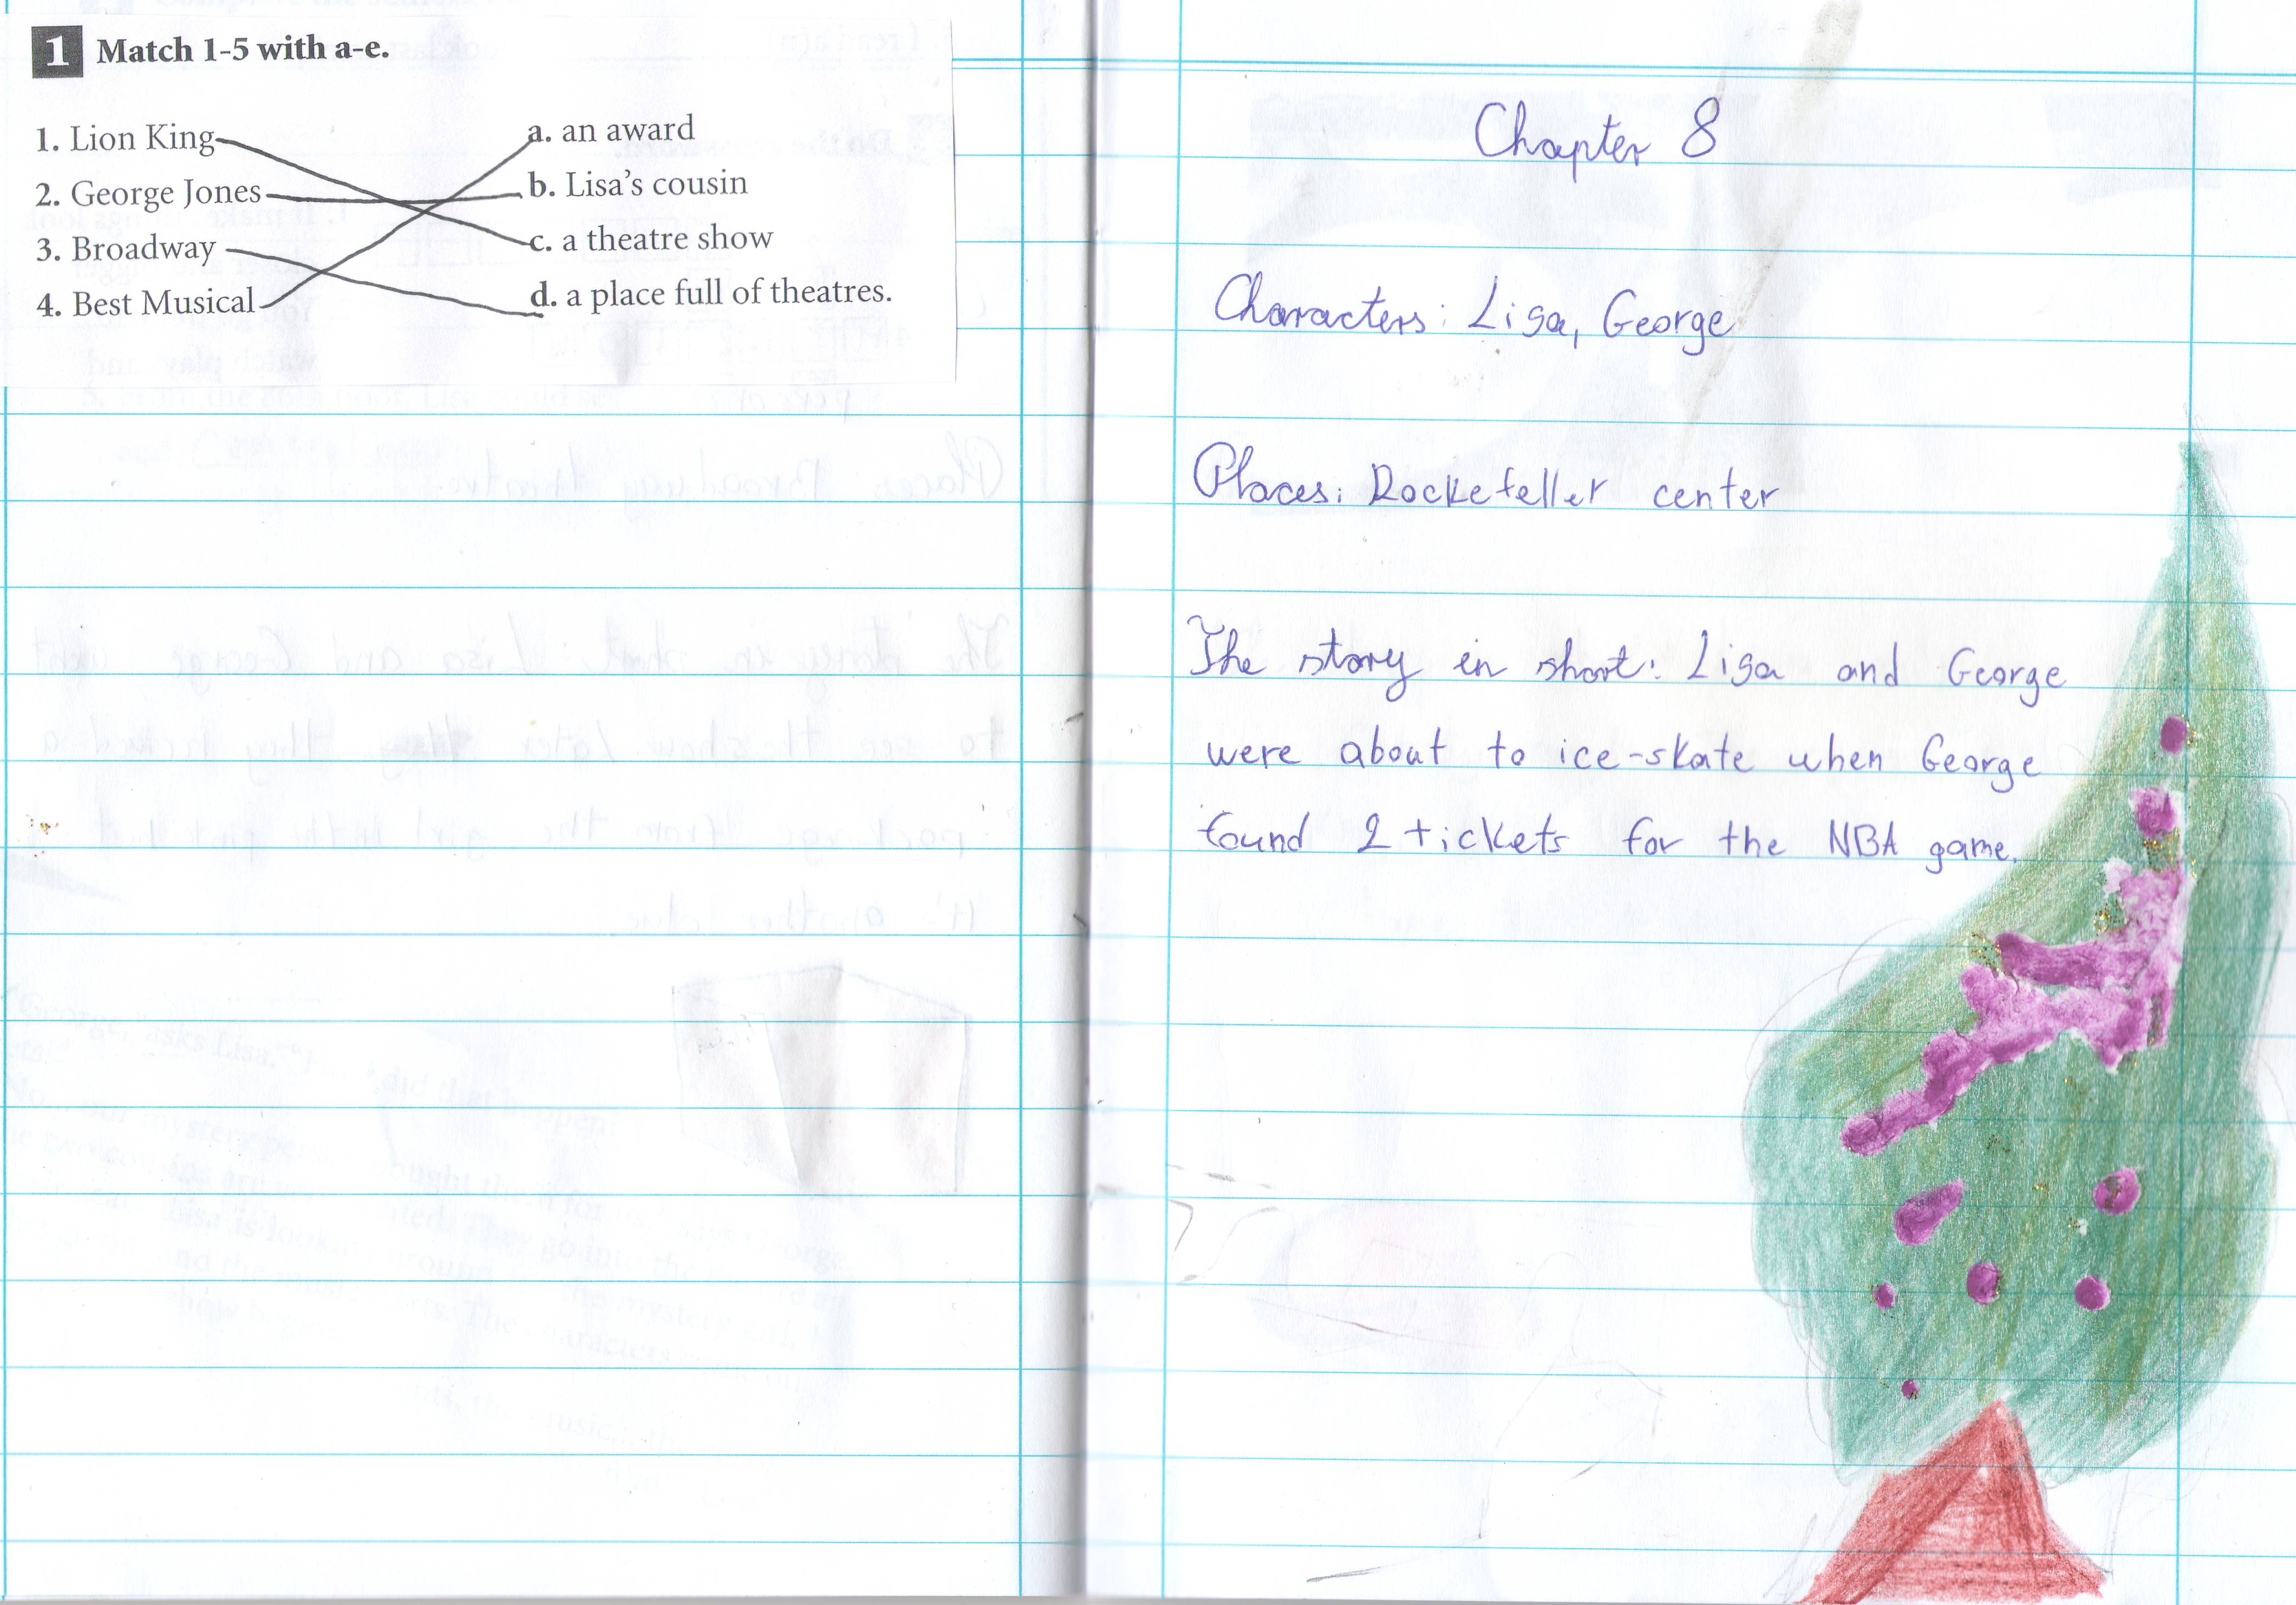 1 Match 1-5 with a-e.
1. Lion King
2. George Jones
3. Broadway
4. Best Musical
a. an award
b. Lisa's cousin
c. a theatre show
d. a place full of theatres.
Chapter 8
Characters: Lisa, George
Places: Rockefeller center
The story in short: Lisa and George
were about to ice-skate when George
found 2 tickets for the NBA game.